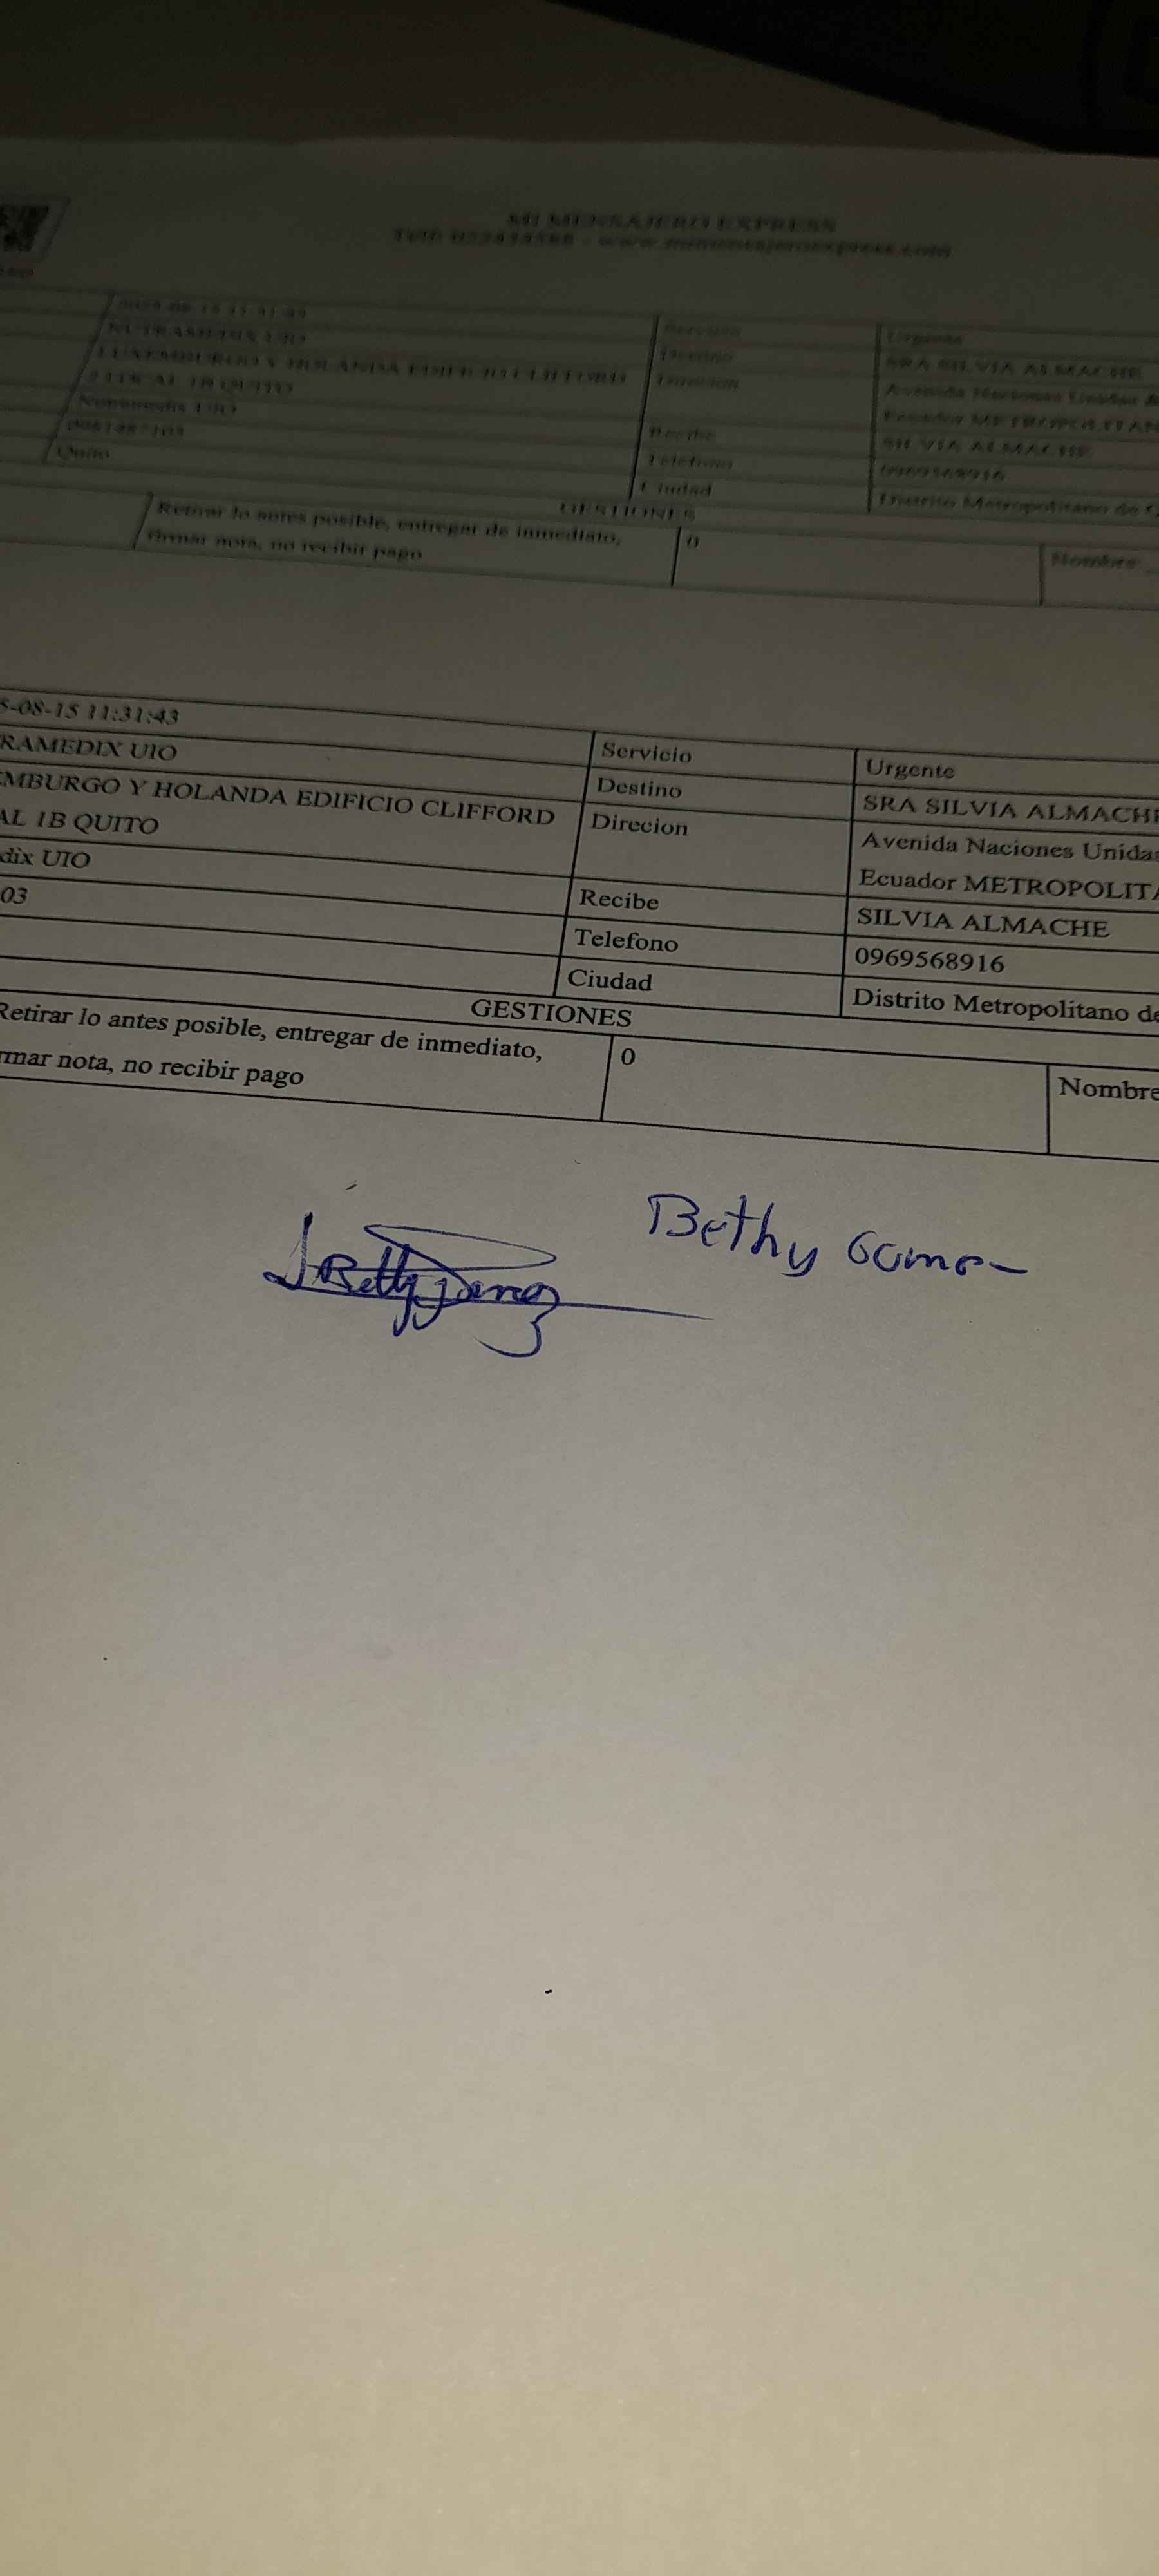 MI MENSAJERO EXPRESS
www.mimensajeroexpress.com
Servicio Urgente
NUTRAMEDIX UIO Destino SRA SILVIA ALMACHE
LUXEMBURGO Y HOLANDA EDIFICIO CLIFFORD Direcion Avenida Naciones Unidas
LOCAL 1B QUITO Ecuador METROPOLITAN
Nutramedix UIO Recibe SILVIA ALMACHE
Telefono 0969568916
Quito Ciudad Distrito Metropolitano de
GESTIONES
Retirar lo antes posible, entregar de inmediato, 0 Nombre
firmar nota, no recibir pago
5-08-15 11:31:43 Servicio Urgente
RAMEDIX UIO Destino SRA SILVIA ALMACHE
EMBURGO Y HOLANDA EDIFICIO CLIFFORD Direcion Avenida Naciones Unidas
AL 1B QUITO Ecuador METROPOLITA
dix UIO Recibe SILVIA ALMACHE
03 Telefono 0969568916
Ciudad Distrito Metropolitano de
GESTIONES
Retirar lo antes posible, entregar de inmediato, 0 Nombre
rmar nota, no recibir pago
Bethy Gome